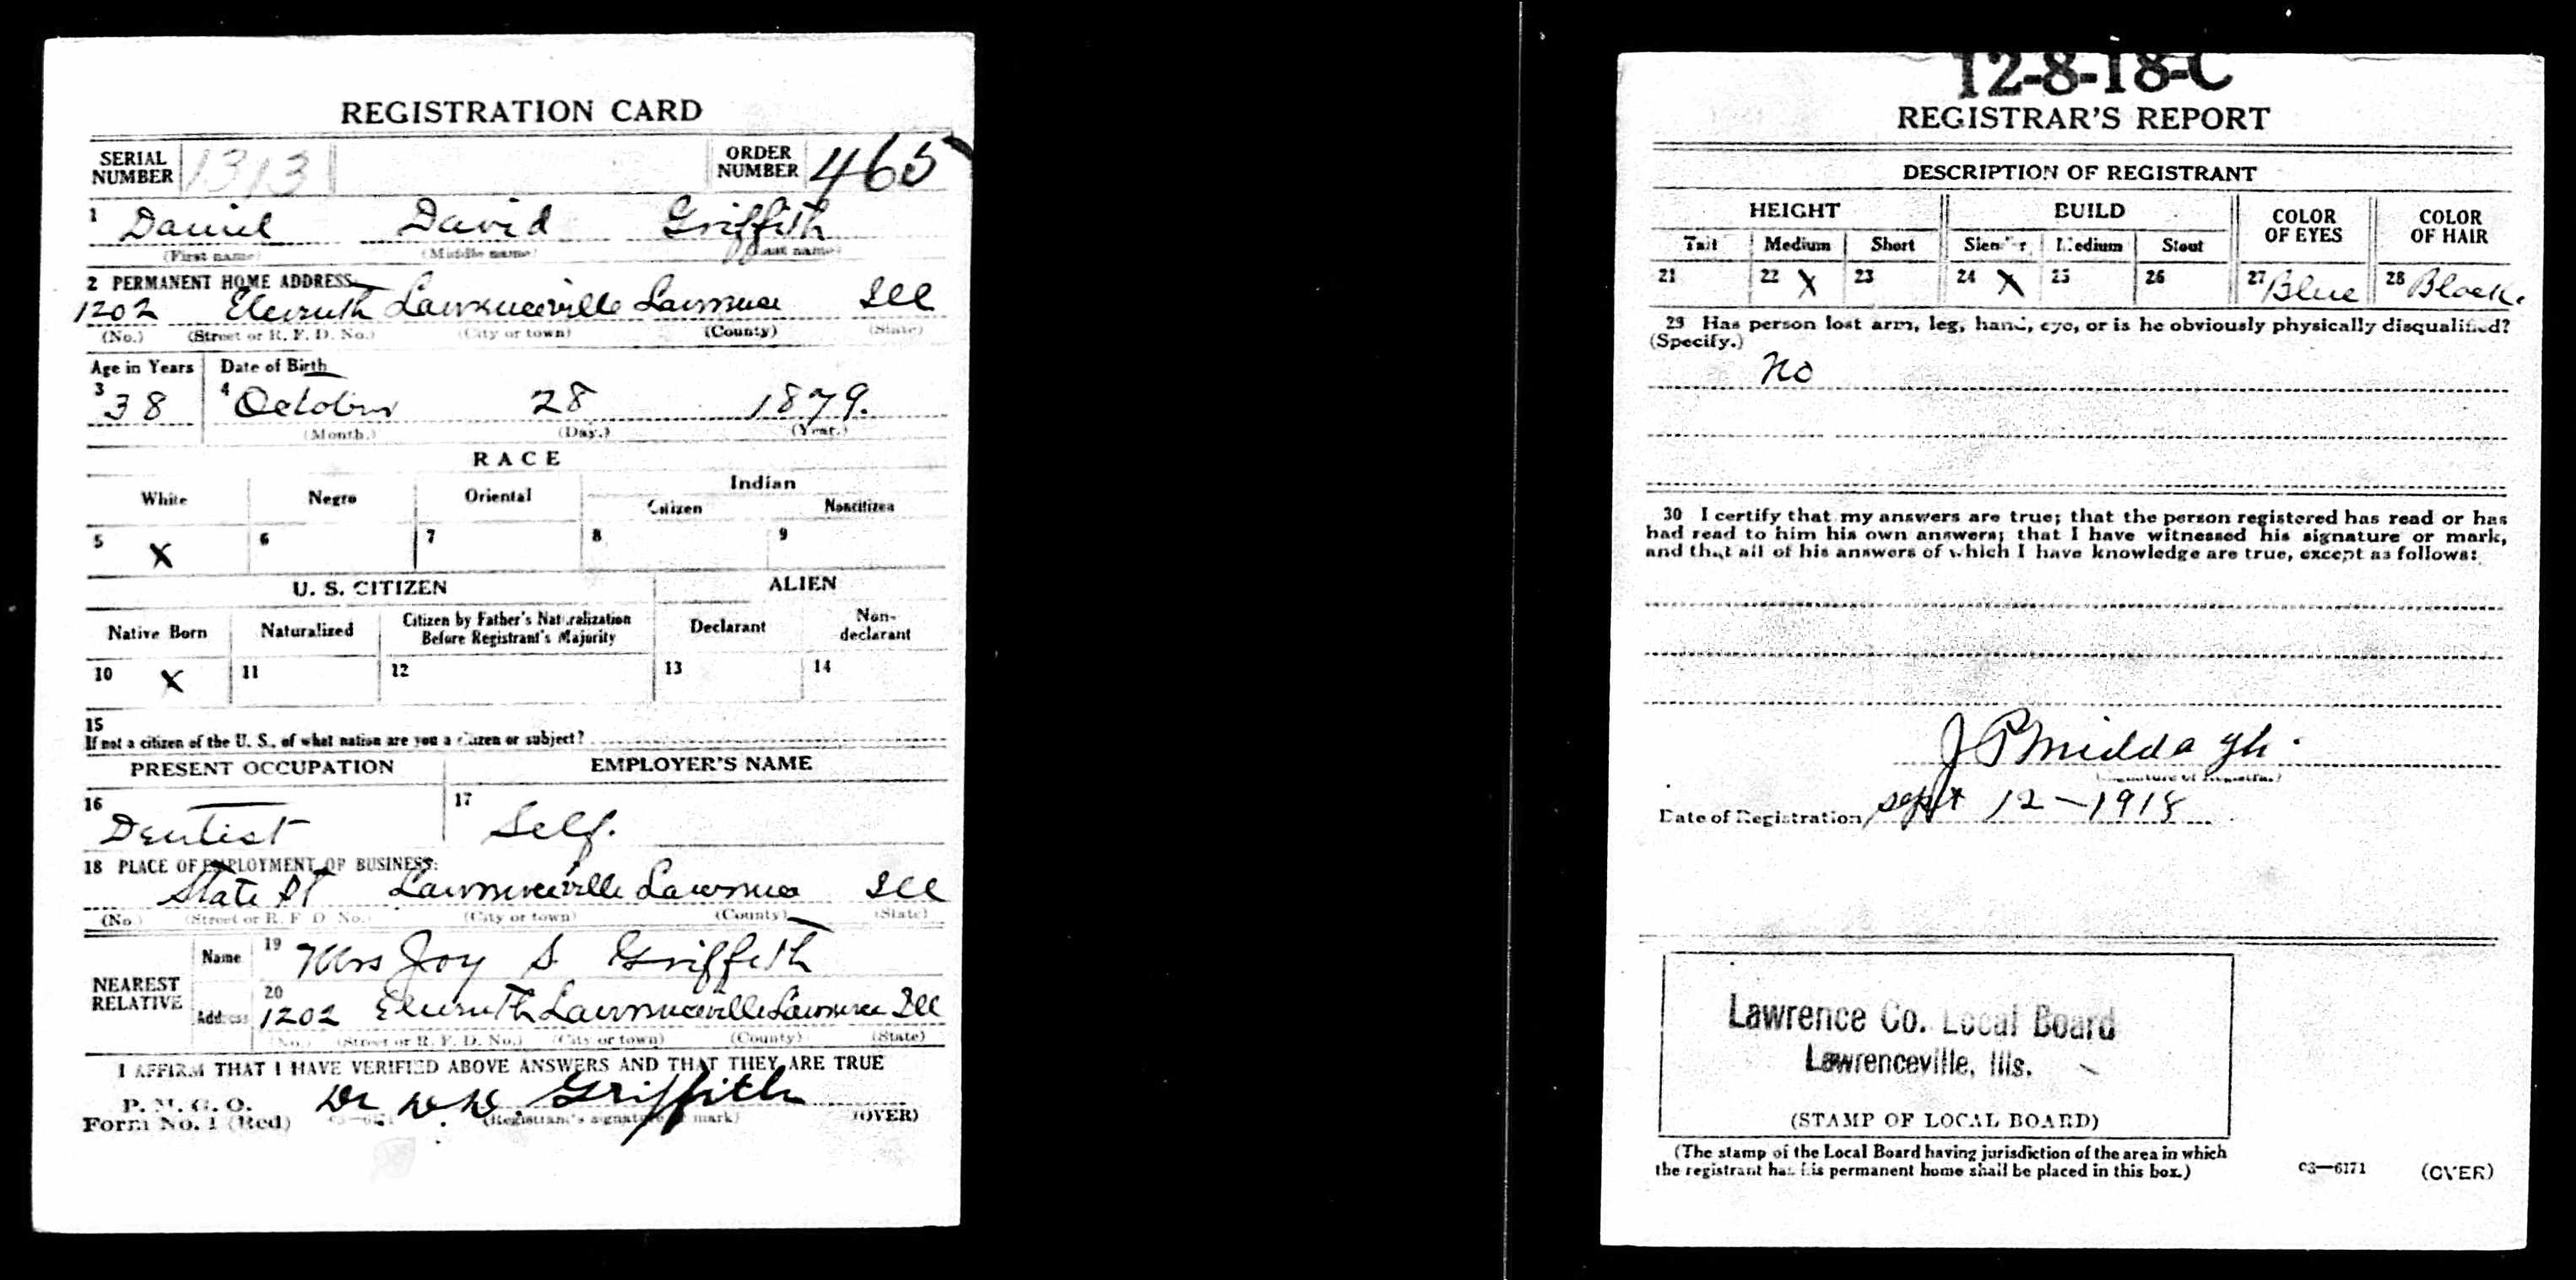 REGISTRATION CARD
SERIAL NUMBER 1313 ORDER NUMBER 465
1 Daniel David Griffith
(First name) (Middle name) (Last name)
2 PERMANENT HOME ADDRESS
1202 Lawrenceville Lawrence Ill
(No.) (Street or R. F. D. No.) (City or town) (County) (State)
Age in Years Date of Birth
3 38 4 October 28 1879.
(Month.) (Day.) (Year.)
RACE
White Negro Oriental Indian
Citizen Noncitizen
5 X 6 7 8 9
U. S. CITIZEN ALIEN
Native Born Naturalized Citizen by Father's Naturalization Before Registrant's Majority Declarant Non-declarant
10 X 11 12 13 14
15
If not a citizen of the U. S., of what nation are you a citizen or subject?
PRESENT OCCUPATION EMPLOYER'S NAME
16 Dentist 17 Self.
18 PLACE OF EMPLOYMENT OR BUSINESS:
State St Lawrenceville Lawrence Ill
(No.) (Street or R. F. D. No.) (City or town) (County) (State)
NEAREST RELATIVE
Name 19 Mrs Joy S Griffith
Address 20 1202 Lawrenceville Lawrence Ill
(No.) (Street or R. F. D. No.) (City or town) (County) (State)
I AFFIRM THAT I HAVE VERIFIED ABOVE ANSWERS AND THAT THEY ARE TRUE
P. M. G. O.
Form No. 1 (Red) Dr D. D. Griffith
(Registrant's signature or mark) (OVER)
12-8-18-C
REGISTRAR'S REPORT
DESCRIPTION OF REGISTRANT
HEIGHT BUILD COLOR OF EYES COLOR OF HAIR
Tall Medium Short Slender Medium Stout
21 22 X 23 24 X 25 26 27 Blue 28 Black.
29 Has person lost arm, leg, hand, eye, or is he obviously physically disqualified?
(Specify.)
No
30 I certify that my answers are true; that the person registered has read or has
had read to him his own answers; that I have witnessed his signature or mark,
and that all of his answers of which I have knowledge are true, except as follows:
J P Middagh.
(Signature of Registrar)
Date of Registration Sept 12-1918
Lawrence Co. Local Board
Lawrenceville, Ills.
(STAMP OF LOCAL BOARD)
(The stamp of the Local Board having jurisdiction of the area in which
the registrant has his permanent home shall be placed in this box.)
03—6171 (OVER)